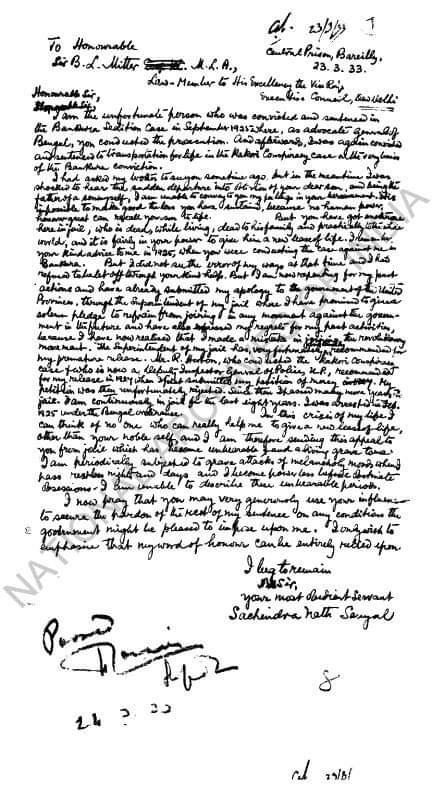 23/3/33
To Honourable
Central Prison, Bareilly,
Sir B. L. Mitter M. L. A.,
23. 3. 33
Law-Member to His Excellency the
Executive Council, New Delhi
Honourable Sir,
I am the unfortunate person who was convicted and sentenced in
the Bankura Sedition Case in September 1925 where, as advocate general of
Bengal, you conducted the prosecution. And afterwards, I was again convicted
and sentenced to transportation for life in the Kakori Conspiracy case on the
of the Bankura conviction.
I had asked my brother to see you sometime ago, but in the meantime I was
shocked to hear the sudden departure into of your dear son, and being the
father of a young son, I am unable to convey to you my feelings in your bereavement. It is
impossible to make good the loss you have sustained, because no human power,
however great can recall your son to life. But you have got another
here in jail, who is dead, while living, dead to his family and practically to the
world, and it is fairly in your power to give him a new lease of life. I remember
your kind advice to me in 1925, when you were conducting the case against me in
Bankura. But I did not see the error of my ways at that time and I
refused to be let off through your kind help. But I am now repenting for my past
actions and have already submitted my apology to the government of the United
Provinces, through the Superintendent of my jail where I have promised to give a
solemn pledge to refrain from joining in any movement against the government
in the future and have also expressed my regret for my past activities,
because I have now realised that I made a mistake in joining the revolutionary
movement. The Superintendent of my jail has, very recommended for
my premature release. Mr. R. Horton, who conducted the Kakori Conspiracy
case & who is now a Deputy Inspector General of Police, U.P., recommended
for my release in 1927 when I first submitted my petition of mercy. My
petition was then unfortunately rejected. Since then I passed many more years in
jail. I am continuously in jail for the last eight years. I was arrested in Feb.
1925 under the Bengal ordinance. In this crisis of my life I
can think of no one who can really help me to give a new lease of life,
other than your noble self, and I am therefore sending this appeal to
you from jail which has become unbearable and a living grave to me.
I am periodically subjected to grave attacks of melancholy moods when I
pass restless nights and days and I become powerless before
obsessions. I am unable to describe these unbearable periods.
I now pray that you may very generously use your influence
to secure the pardon of the rest of my sentence on any conditions the
government might be pleased to impose upon me. I only wish to
emphasise that my word of honour can be entirely relied upon.
I beg to remain
Sir,
Your most obedient servant
Sachindra Nath Sanyal
Passed
8
24 3 33
NATIONAL ARCHIVES OF INDIA